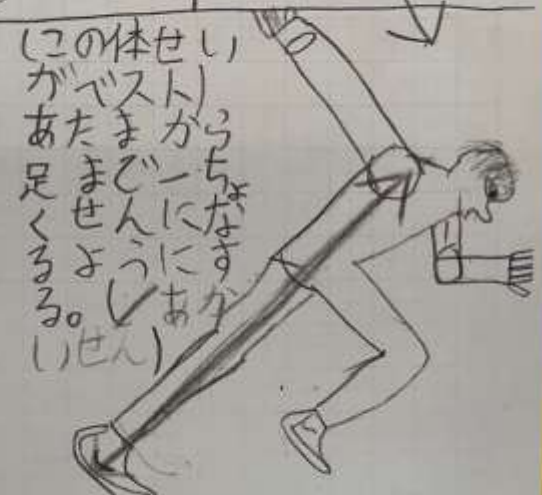 (この体せい
がベスト)
あたまから
足まで一ちょ
くせんにな
るようにす
る。(✓あか
いせん)